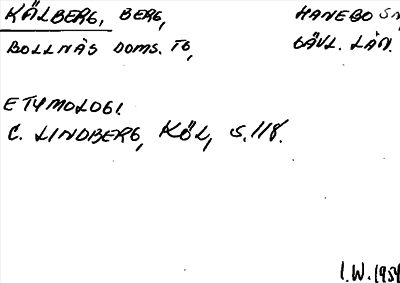 KÄLBERG, BERG, HANEBO SN
BOLLNÄS DOMS. TG, GÄVL. LÄN.
ETYMOLOGI.
C. LINDBERG, KÖL, S. 118.
I.W. 1959